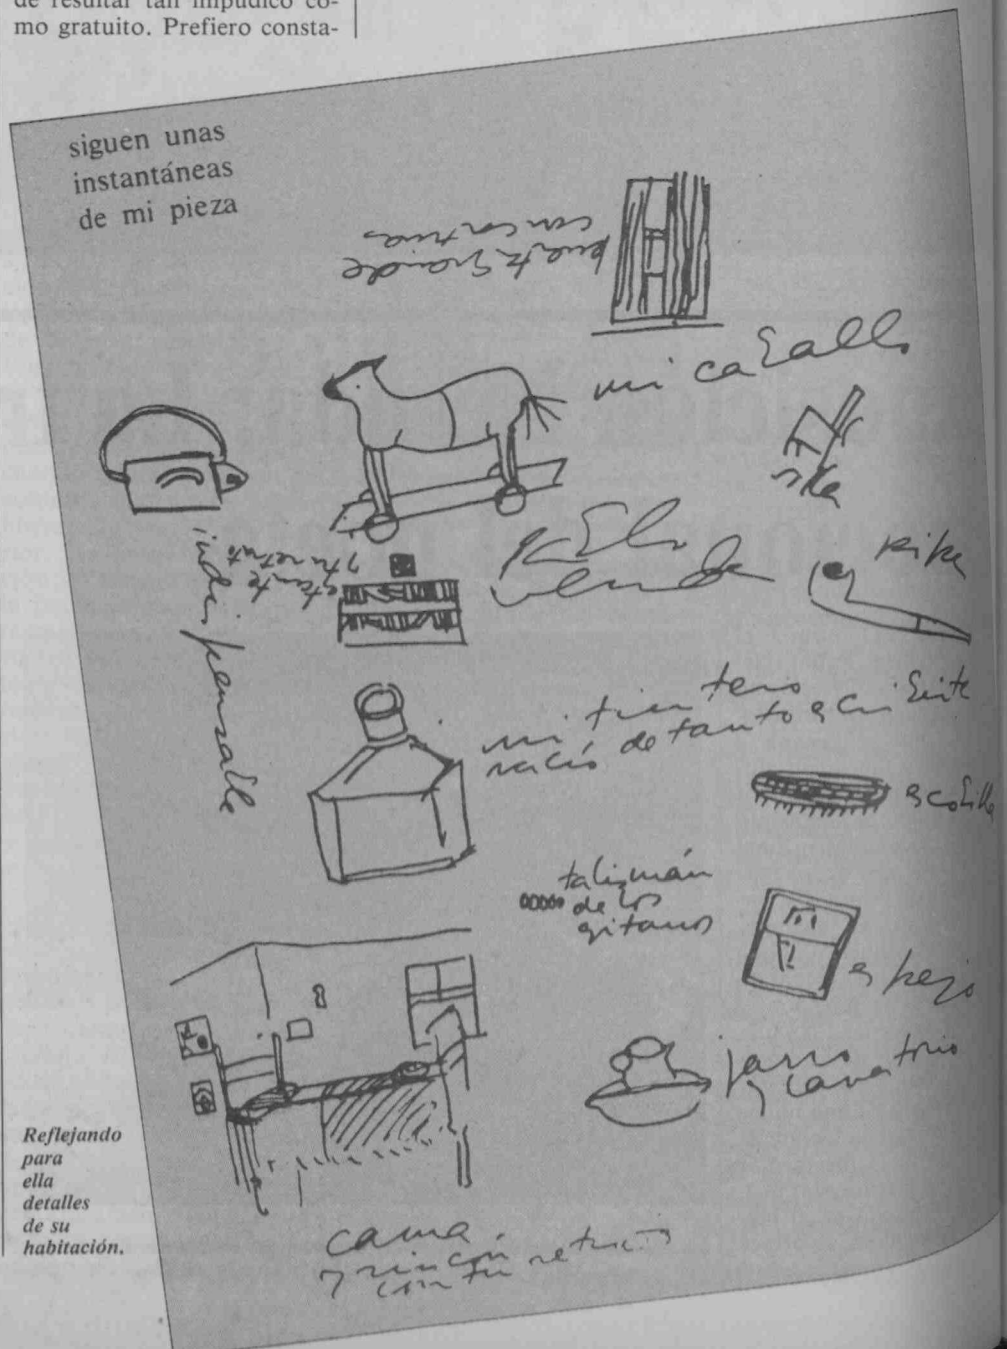 de resultar tan impúdico co-
mo gratuito. Prefiero consta-
siguen unas
instantáneas
de mi pieza
puerta grande
con cortinas
mi caballo
silla
indispensable
estante
y tu retrato
pipa
mi tintero
vacío de tanto escribirte
escobilla
talismán
de los
gitanos
espejo
jarro
y lavatorio
cama
y rincón
con tu retrato
Reflejando
para
ella
detalles
de su
habitación.